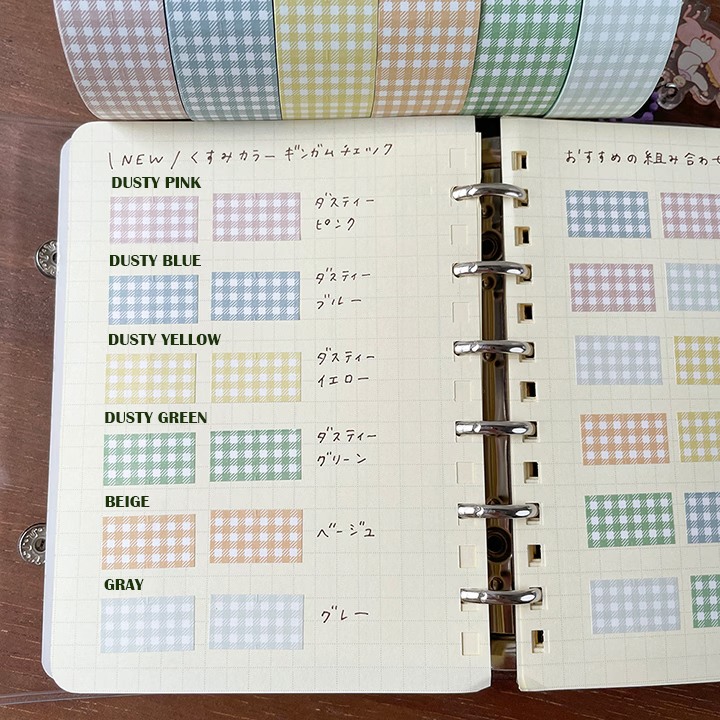 \ NEW / くすみカラー ギンガムチェック
DUSTY PINK
ダスティー
ピンク
DUSTY BLUE
ダスティー
ブルー
DUSTY YELLOW
ダスティー
イエロー
DUSTY GREEN
ダスティー
グリーン
BEIGE
ベージュ
GRAY
グレー
おすすめの組み合わせ